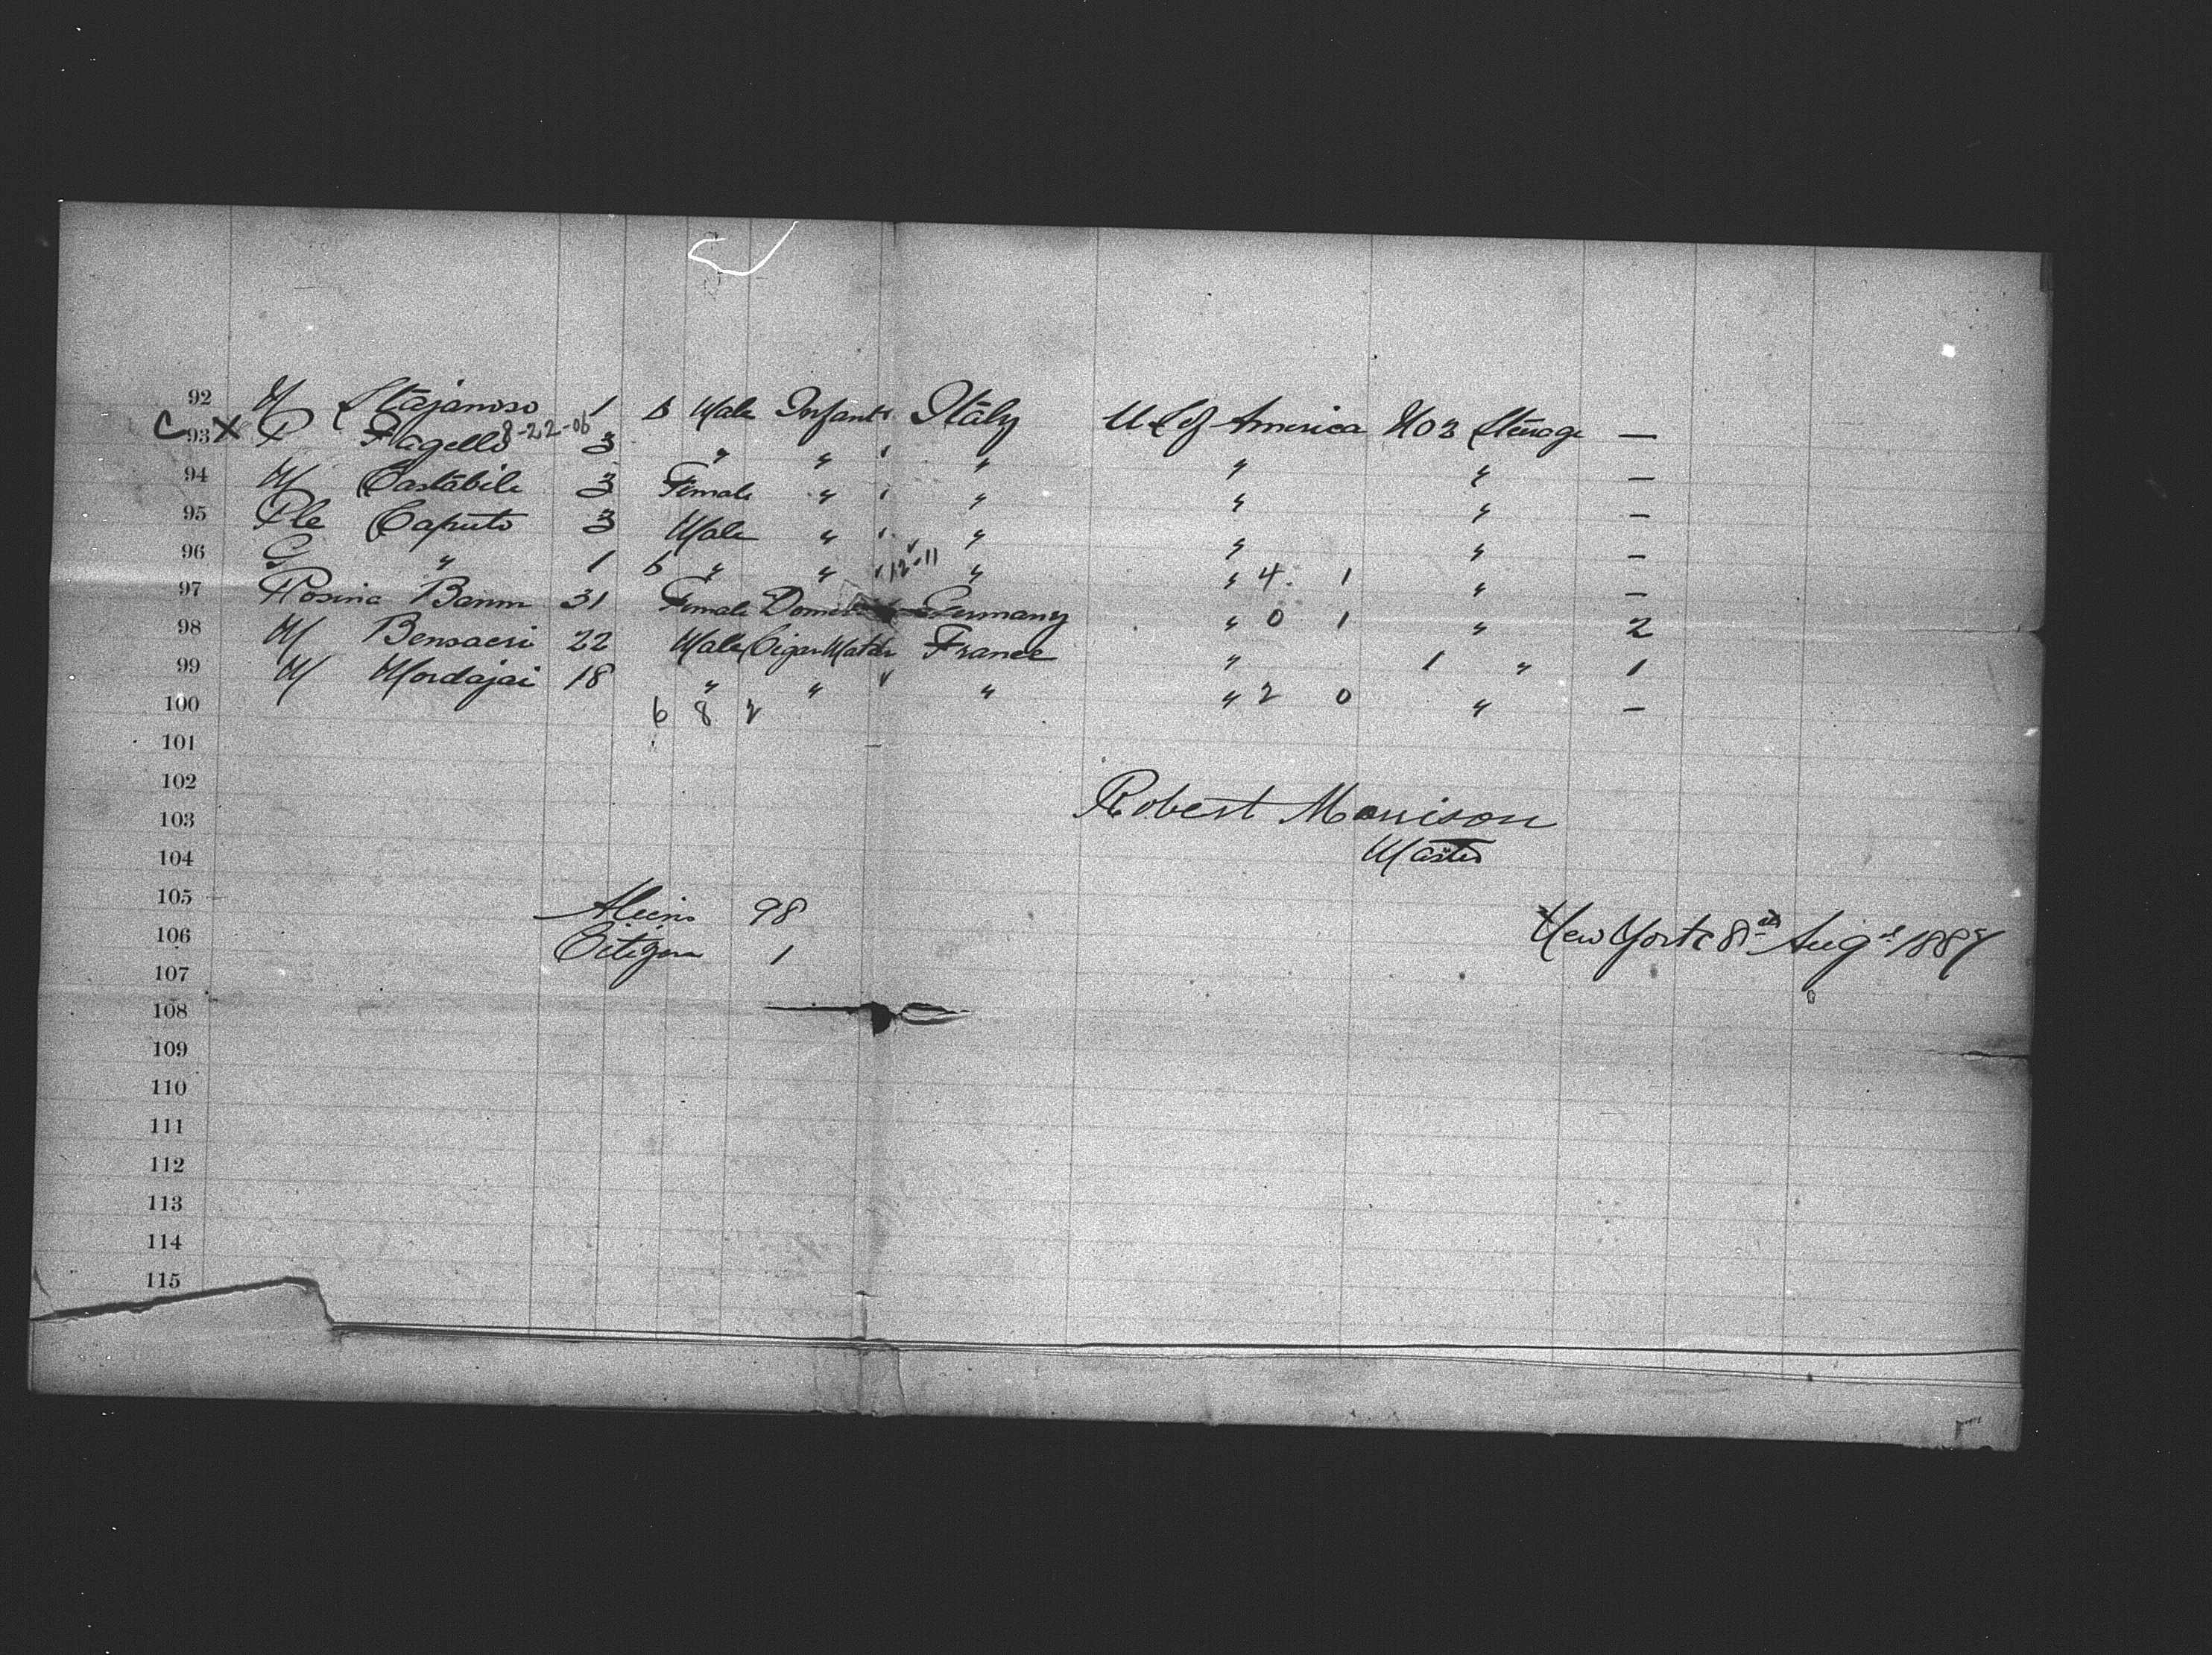 92 M Stajanoso 1 b Male Infant Italy U S of America No 3 Steerage —
C 93 X P Flagello 8-22-06 3 " " " " " —
94 M Castabile 3 Female " " " " —
95 Ple Caputo 3 Male " " " " —
96 G " 1 b " " 12-11 " " 4 1 " —
97 Rosina Banm 31 Female Germany " 0 1 " 2
98 M Bensaeri 22 Male Cigar Maker France " 1 " 1
99 M Mordajai 18 " " " " 2 0 " —
100 6 8 2
101
102
103 Robert Morrison
104 Master
105 Aliens 98
106 Citizen 1 New York 8th Augst 1887
107
108
109
110
111
112
113
114
115